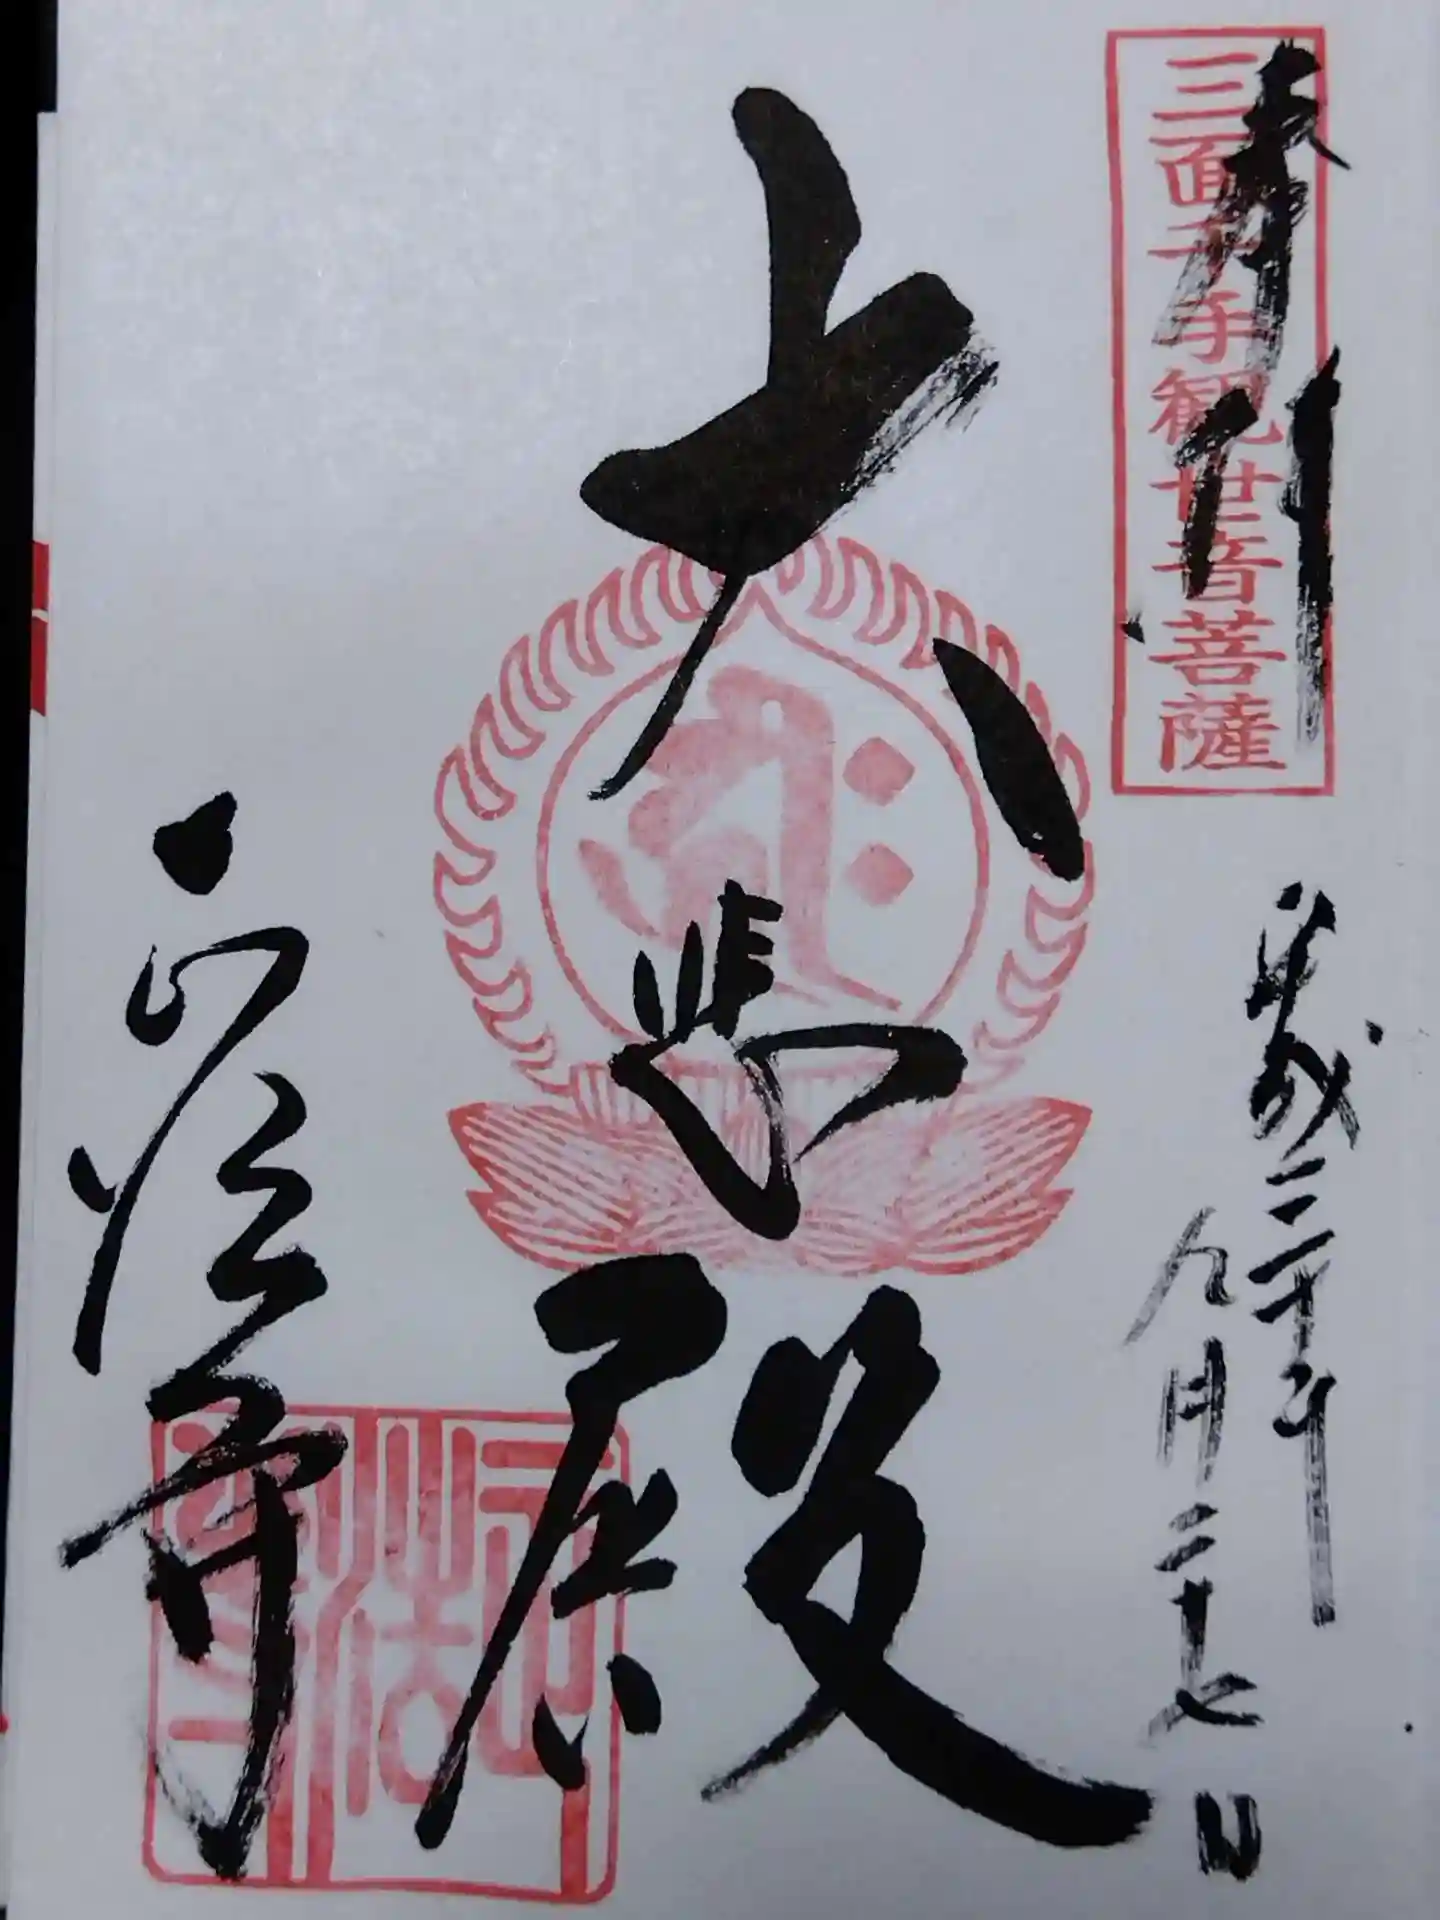 奉拝
三面千手観世音菩薩
平成三十年
九月二十七日
大悲殿
正法寺